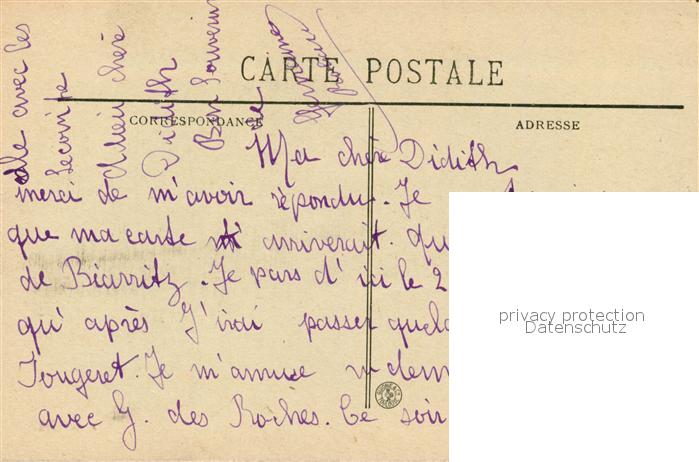 CARTE POSTALE
CORRESPONDANCE
ADRESSE
Ma chère Didith
merci de m'avoir répondu. Je
que ma carte arriverait.
de Biarritz. Je pars d'ici le 2
qu'après J'irai passer
Fougeret. Je m'amuse
avec G. des Roches. Ce soir
avec les
Adieu chère
Didith
Bon souvenir
de
privacy protection
Datenschutz